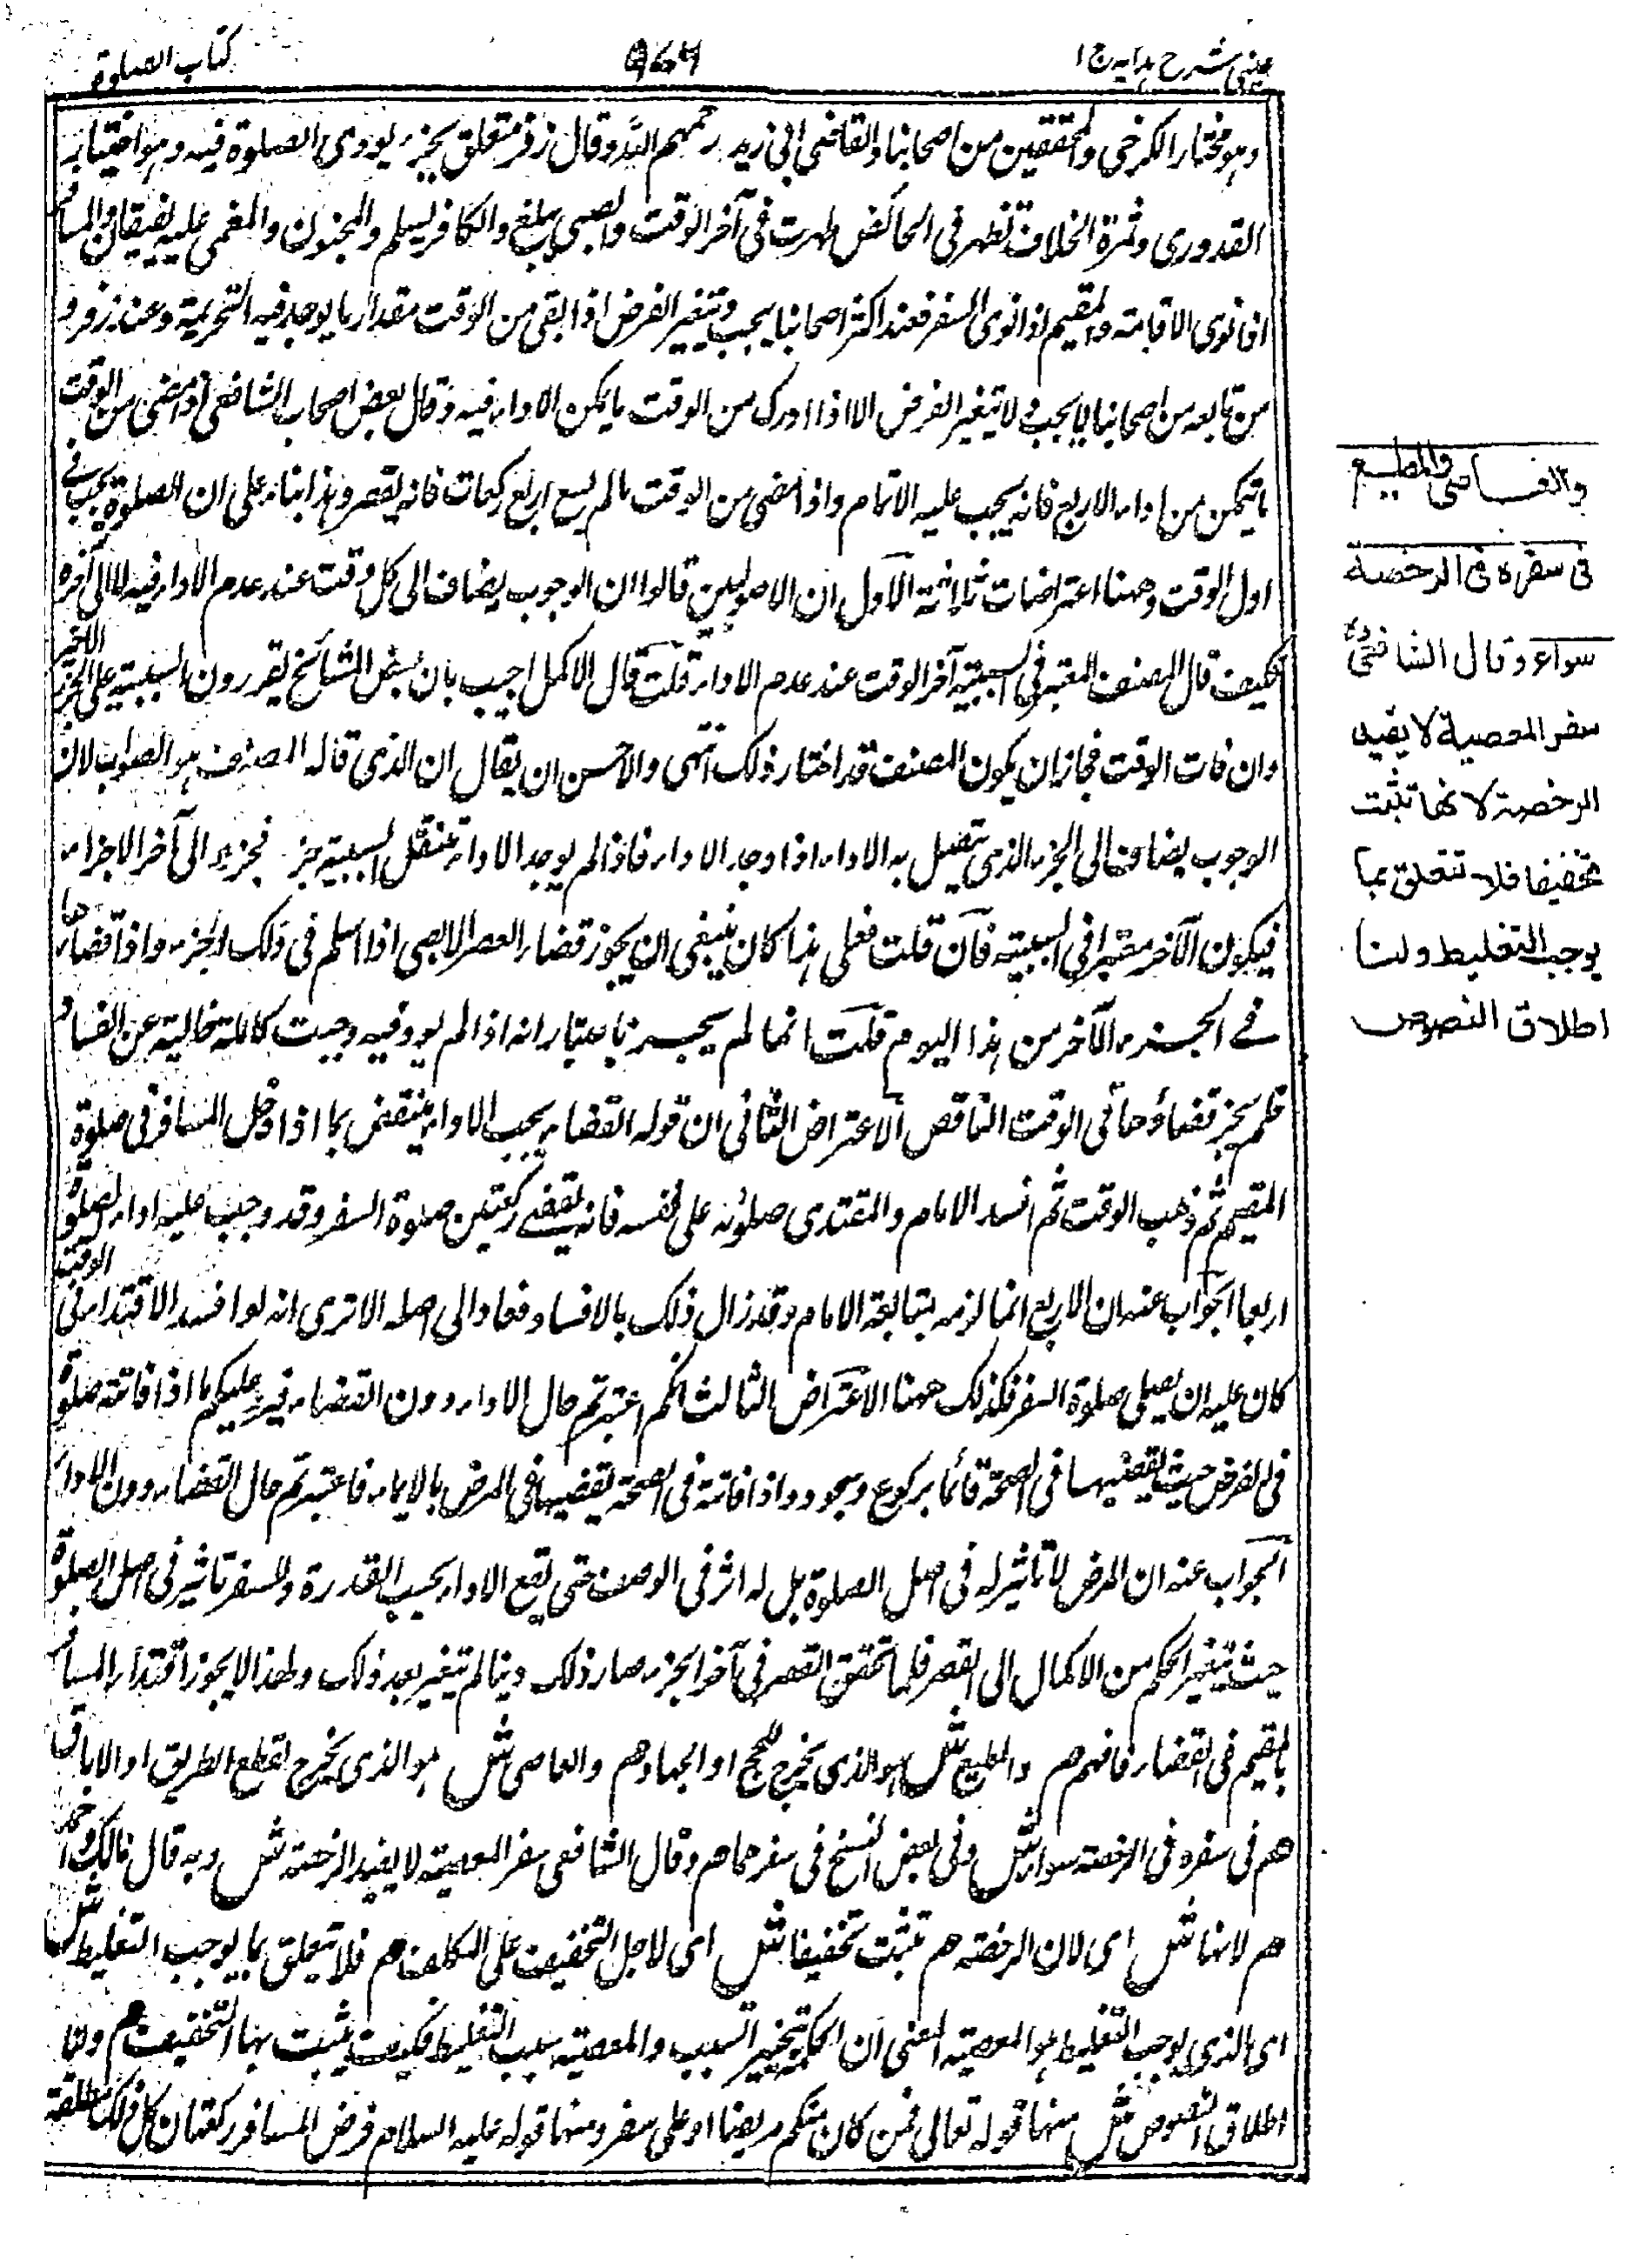 عينى شرح هدايه ج ١
٩٤٦
كتاب الصلوة
وهو مختار الكرخي والمحققين من اصحابنا والقاضي ابي زيد رحمهم الله وقال زفر متعلق بجزء يودى الصلوة فيه وهو اختيار
القدورى وثمرة الخلاف تظهر فى الحائض طهرت فى آخر الوقت والصبى يبلغ والكافر يسلم والمجنون والمغمى عليه يفيقان والمسافر
اذا نوى الاقامة والمقيم اذا نوى السفر فعند اكثر اصحابنا يجب ويتغير الفرض اذا بقى من الوقت مقدار ما يوجد فيه التحريمة وعند زفر و
من تابعه من اصحابنا لا يجب ولا يتغير الفرض الا اذا ادرك من الوقت ما يمكن الاداء فيه وقال بعض اصحاب الشافعى اذا مضى من الوقت
ما يتمكن من اداء الاربع فانه يجب عليه الاتمام واذا مضى من الوقت ما لم يسع اربع ركعات فانه يقصر وهذا بناء على ان الصلوة تجب فى
اول الوقت وههنا اعتراضات ثلاثة الاول ان الاصوليين قالوا ان الوجوب يضاف الى كل وقت عند عدم الاداء فيه لا الى آخره
فكيف قال المصنف المعتبر فى السببية آخر الوقت عند عدم الاداء قلت قال الاكمل اجيب بان بعض المشائخ يقررون السببية على الجزء الاخير
وان فات الوقت فجاز ان يكون المصنف قد اختار ذلك انتهى والاحسن ان يقال ان الذى قاله المصنف هو الصواب لان
الوجوب يضاف الى الجزء الذى يتصل به الاداء اذا وجد الاداء فاذا لم يوجد الاداء تنتقل السببية جزء فجزء الى آخر الاجزاء
فيكون الآخر معتبرا فى السببية فان قلت فعلى هذا كان ينبغى ان يجوز قضاء العصر لا لصبى اذا اسلم فى ذلك الجزء واذا قضاها
فى الجزء الآخر من هذا اليوم قلت انما لم يجز باعتبار انه اذا لم يود فيه وجبت كاملة خالية عن الفساد
فلم يجز قضاؤها فى الوقت الناقص الاعتراض الثانى ان قوله القضاء بحسب الاداء ينتقض بما اذا دخل المسافر فى صلوة
المقيم ثم ذهب الوقت ثم افسد الامام والمقتدى صلوته على نفسه فانه يقضى ركعتين صلوة السفر وقد وجب عليه اداء الصلوة
اربعا الجواب عنه ان الاربع انما لزمه بمتابعة الامام وقد زال ذلك بالافساد فعاد الى اصله الا ترى انه لو افسد الاقتداء فى الوقت
كان عليه ان يصلى صلوة السفر فكذلك ههنا الاعتراض الثالث انكم اعتبرتم حال الاداء دون القضاء فيرد عليكم ما اذا فاتته صلوة
فى المرض حيث يقضيها فى الصحة قائما بركوع وسجود واذا فاتته فى الصحة يقضيها فى المرض بالايماء فاعتبرتم حال القضاء دون الاداء
الجواب عنه ان المرض لا تاثير له فى اصل الصلوة بل له اثر فى الوصف حتى يقع الاداء بحسب القدرة وللسفر تاثير فى اصل الصلوة
حيث يتغير الحكم من الاكمال الى القصر فلما تحقق القصر فى آخر الجزء صار ذلك دينا لم يتغير بعد ذلك ولهذا لا يجوز اقتداء المسافر
بالمقيم فى القضاء فافهم هم والمطيع ش هو الذى يخرج للحج او الجهاد هم والعاصى ش هو الذى يخرج لقطع الطريق او الاباق
هم فى سفره فى الرخصة سواء ش وفى بعض النسخ فى سفرهما هم وقال الشافعى سفر المعصية لا يفيد الرخصة ش وبه قال مالك واحمد
هم لانها ش اى لان الرخصة هم تثبت تخفيفا ش اى لاجل التخفيف على المكلف هم فلا يتعلق بما يوجب التغليظ ش
اى الذى يوجب التغليظ هو المعصية المعنى ان الحكم السبب والمعصية سبب التغليظ فكيف يثبت بها التخفيف هم ولنا
اطلاق النصوص ش منها قوله تعالى فمن كان منكم مريضا او على سفر ومنها قوله عليه السلام فرض المسافر ركعتان كل ذلك مطلقة
والعاصى والمطيع
فى سفره فى الرخصة
سواء وقال الشافعىؒ
سفر المعصية لا يفيد
الرخصة لانها تثبت
تخفيفا فلا تتعلق بما
يوجب التغليظ ولنا
اطلاق النصوص